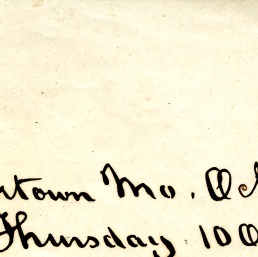 rtown Mo. O
Thursday 100